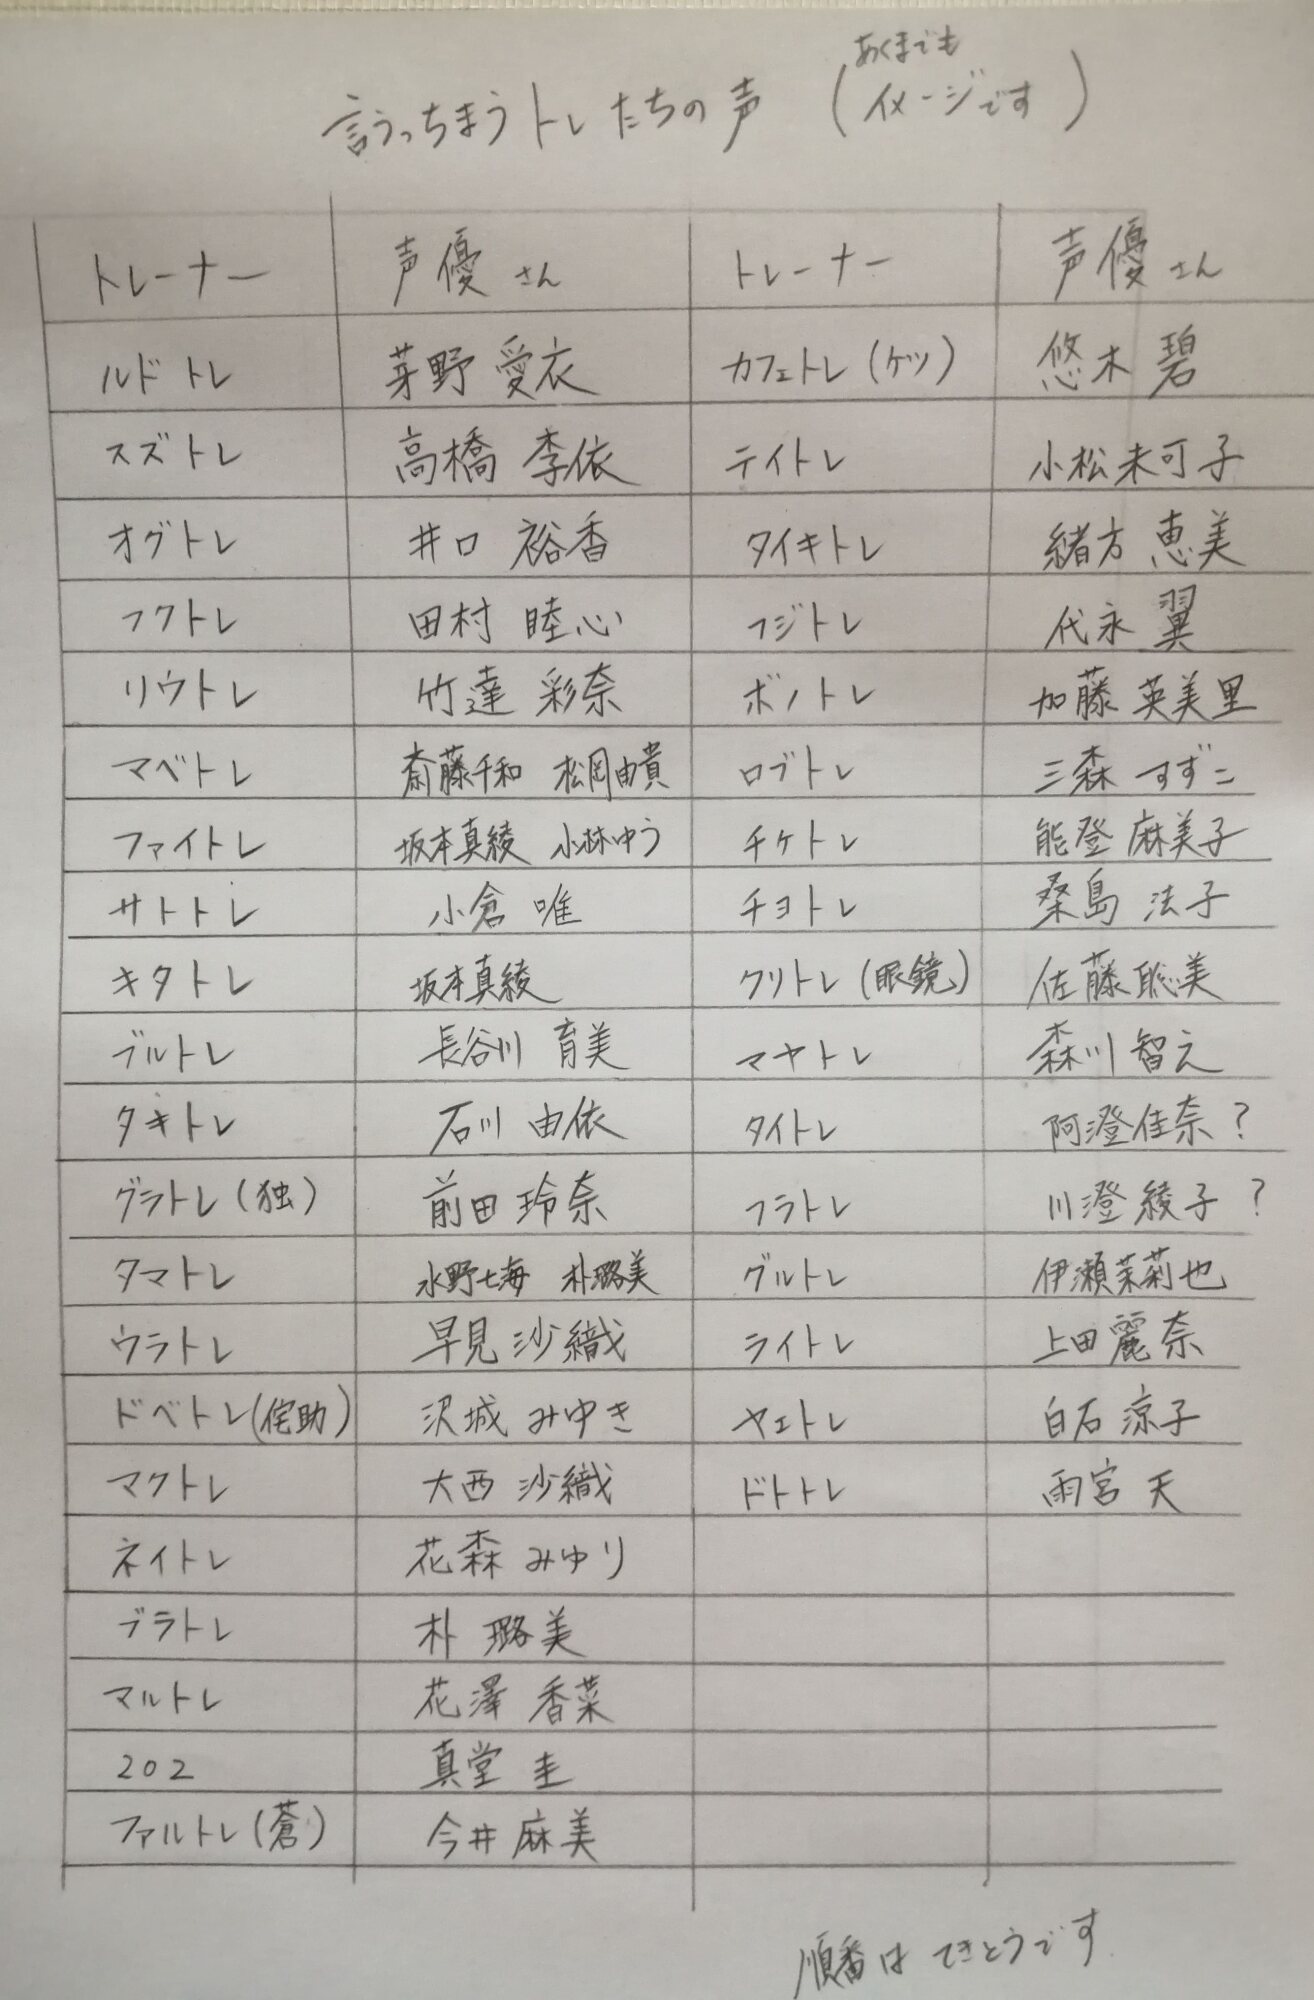 言うっちまうトレたちの声 (あくまでもイメージです)
トレーナー 声優さん トレーナー 声優さん
ルドトレ 茅野 愛衣 カフェトレ(ケツ) 悠木 碧
スズトレ 高橋 李依 テイトレ 小松未可子
オグトレ 井口 裕香 タイキトレ 緒方 恵美
フクトレ 田村 睦心 フジトレ 代永 翼
リウトレ 竹達 彩奈 ボノトレ 加藤 英美里
マベトレ 斎藤千和 松岡由貴 ロブトレ 三森 すずこ
ファイトレ 坂本真綾 小林ゆう チケトレ 能登 麻美子
サトトレ 小倉 唯 チヨトレ 桑島 法子
キタトレ 坂本真綾 クリトレ(眼鏡) 佐藤聡美
ブルトレ 長谷川 育美 マヤトレ 森川智之
タキトレ 石川 由依 タイトレ 阿澄佳奈?
グラトレ(独) 前田 玲奈 フラトレ 川澄綾子?
タマトレ 水野七海 朴璐美 グルトレ 伊瀬茉莉也
ウラトレ 早見 沙織 ライトレ 上田麗奈
ドベトレ(侘助) 沢城 みゆき ヤエトレ 白石 涼子
マクトレ 大西 沙織 ドトトレ 雨宮 天
ネイトレ 花森 みゆり
ブラトレ 朴 璐美
マルトレ 花澤 香菜
202 真堂 圭
ファルトレ(蒼) 今井 麻美
順番はてきとうです